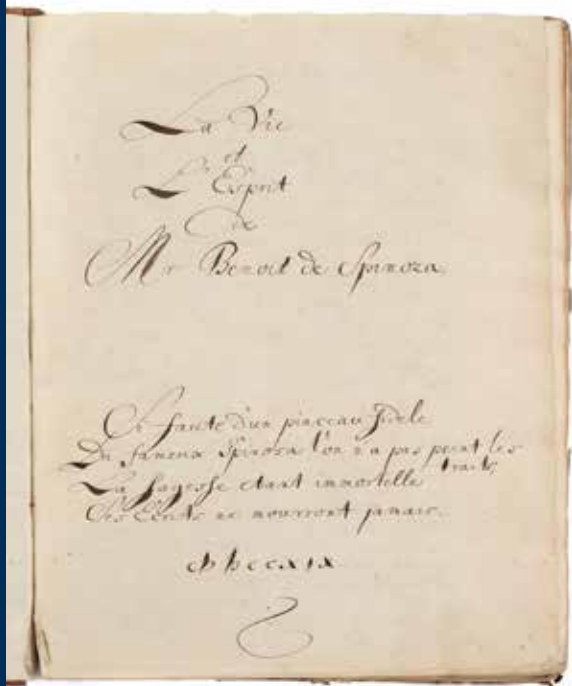 La Vie
et
L'Esprit
de
Mr Benoit de Spinoza.
Si faute d'un pinceau fidele
Du fameux Spinosa l'on n'a pas peint les
traits,
La Sagesse etant immortelle
Ses Ecrits ne mourront jamais.